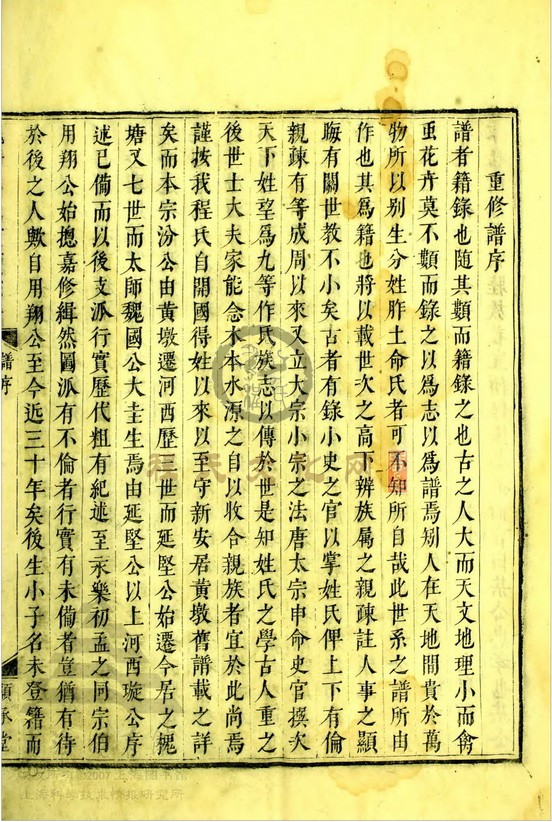 重修譜序
譜者籍錄也随其類而籍錄之也古之人大而天文地理小而禽
䖝花卉莫不類而錄之以為志以為譜焉矧人在天地間貴於萬
物所以别生分姓胙土命氏者可不知所自哉此世系之譜所由
作也其爲籍也將以載世次之高下辨族属之親疎註人事之顯
晦有關世教不小矣古者有錄小史之官以掌姓氏俾上下有倫
親疎有等成周以來又立大宗小宗之法唐太宗申命史官撰次
天下姓望爲九等作氏族志以傳於世是知姓氏之學古人重之
後世士大夫家能念水木本源之自以收合親族者宜於此尚焉
謹按我程氏自開國得姓以來以至守新安居黄墩舊譜載之詳
矣而本宗汾公由黄墩遷河西歷 世而延堅公始遷今居之槐
塘又七世而太師魏國公大圭生焉由延堅公以上河西璇公序
述已備而以後支派行實歷代粗有紀述至永樂初孟之同宗伯
用翔公始摠嘉修緝然圖派有不倫者行實有未備者豈猶有待
於後之人歟自用翔公至今近三十年矣後生小子名未登籍而
譜序
顯承堂
©2007上海图书馆
上海科学技术情报研究所